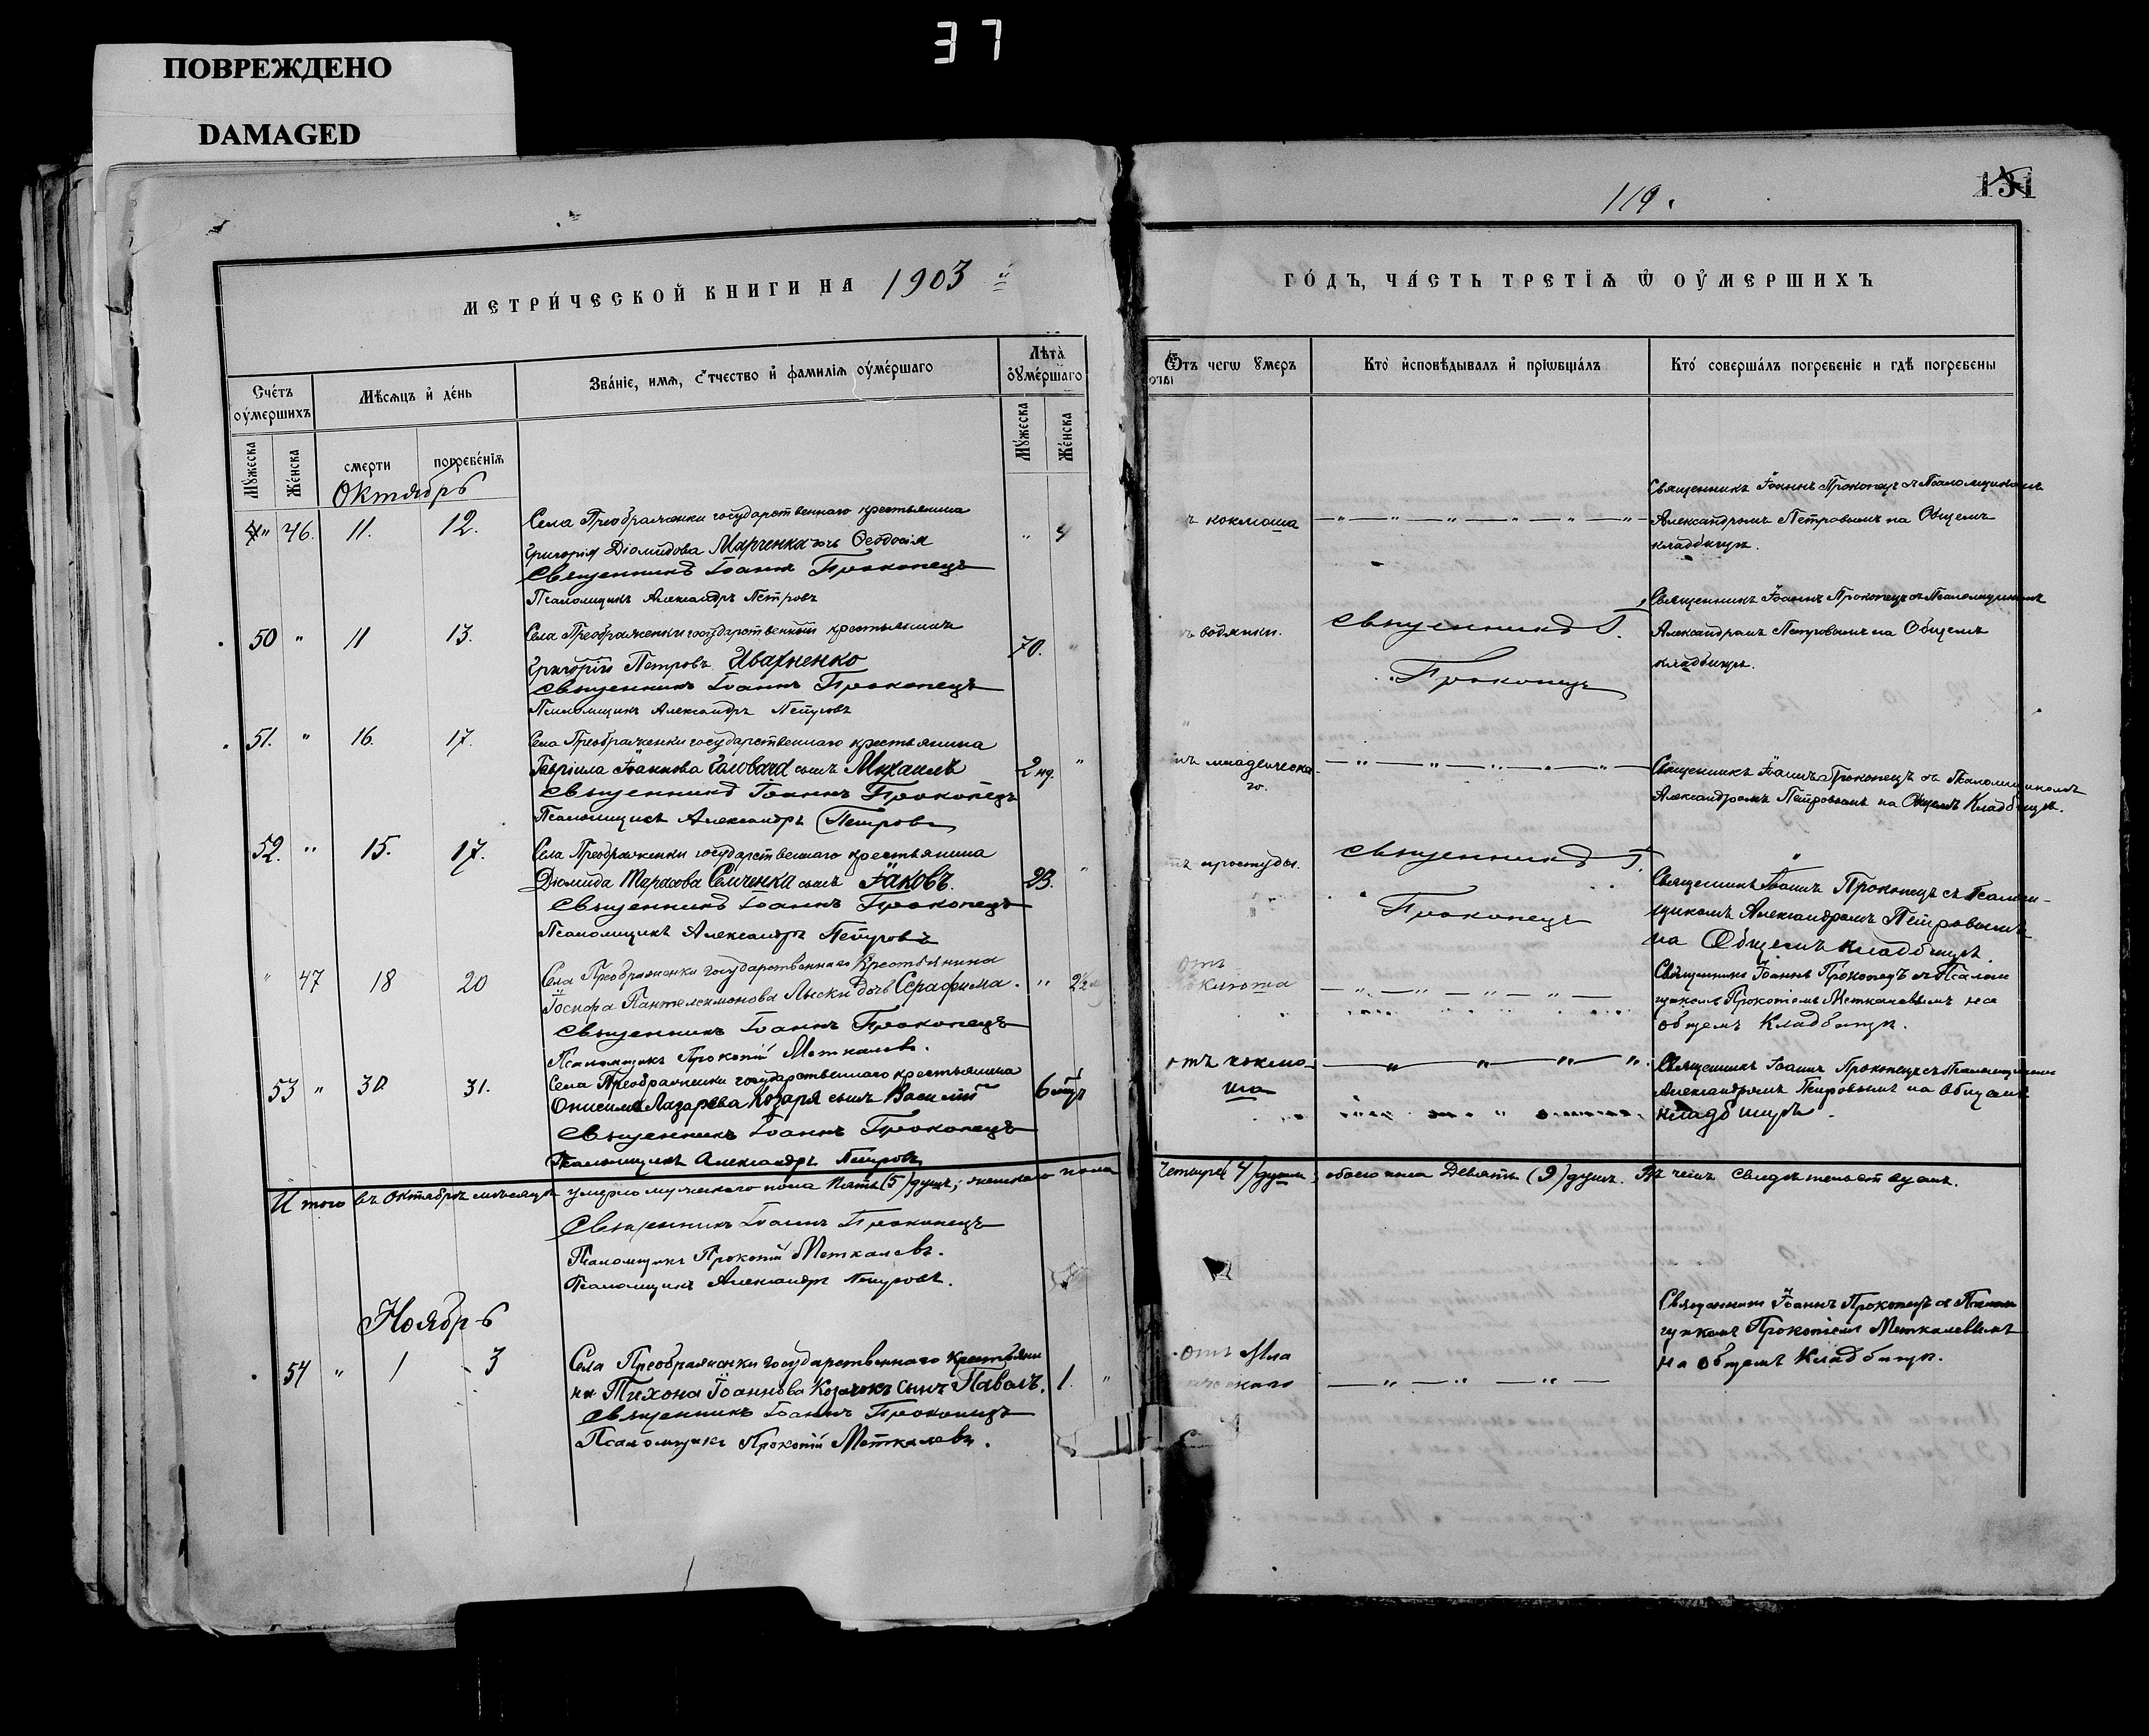 37
ПОВРЕЖДЕНО
DAMAGED
119.
131
МЕТРИ́ЧЕСКОЙ КНИГИ НА 1903 й
ГО́ДЪ, ЧА́СТЬ ТРЕТІѦ Ѿ ОУ҆МЕРШИХЪ
Сче́тъ оу҆ме́ршихъ
Мѣсѧцъ и҆ де́нь
Зва́нїе, имѧ, ѻ҆тчество и҆ фамилїѧ оу҆ме́ршаго
Лѣта̀ оу҆ме́ршаго
Ѿтъ чегѡ оу҆меръ
Кто̀ и҆сповѣдывалъ и҆ прїѡбща́лъ
Кто́ совершалъ погребенїе и гдѣ погребены
Мꙋ́жеска
Же́нска
смерти
погребе́нїѧ
Мꙋ́жеска
Же́нска
Октябрь
" 46. 11. 12. Села Преображенки государственнаго крестьянина
Григорія Діомидова Марченка дочь Ѳеодосія
Священникъ Іоаннъ Прокопецъ
Псаломщикъ Александръ Петровъ
ъ коклюша
Священникъ Іоаннъ Прокопецъ съ Псаломщикомъ
Александромъ Петровымъ на Общемъ
кладбищѣ.
50 " 11 13. Села Преображенки государственный крестьянинъ 70. "
Григорій Петровъ Ивахненко
Священникъ Іоаннъ Прокопецъ
Псаломщикъ Александръ Петровъ
ъ водянки.
Священникъ І.
Прокопецъ
Священникъ Іоаннъ Прокопецъ съ Псаломщикомъ
Александромъ Петровымъ на Общемъ
кладбищѣ.
51. " 16. 17. Села Преображенки государственнаго крестьянина
Гавріила Іоаннова Головача сынъ Михаилъ 2 нд. "
Священникъ Іоаннъ Прокопецъ
Псаломщикъ Александръ Петровъ
младенческа-
го.
Священникъ Іоаннъ Прокопецъ съ Псаломщикомъ
Александромъ Петровымъ на Общемъ Кладбищѣ.
52. " 15. 17. Села Преображенки государственнаго крестьянина
Діомида Тарасова Семченка сынъ Іаковъ. 23. "
Священникъ Іоаннъ Прокопецъ
Псаломщикъ Александръ Петровъ
простуды.
Священникъ І.
Прокопецъ
Священникъ Іоаннъ Прокопецъ съ Псалом-
щикомъ Александромъ Петровымъ
на Общемъ кладбищѣ.
" 47 18 20 Села Преображенки государственнаго Крестьянина
Іосифа Пантелеимонова Лыски дочь Серафима. " 2½
Священникъ Іоаннъ Прокопецъ
Псаломщикъ Прокопій Меткалевъ.
отъ
коклюша
Священникъ Іоаннъ Прокопецъ съ Псалом
щикомъ Прокопіемъ Меткалевымъ на
общемъ Кладбищѣ.
53 " 30. 31. Села Преображенки государственнаго крестьянина
Онисима Лазарева Козаря сынъ Василій
Священникъ Іоаннъ Прокопецъ
Псаломщикъ Александръ Петровъ
отъ коклю-
ша
Священникъ Іоаннъ Прокопецъ съ Псаломщикомъ
Александромъ Петровымъ на Общемъ
кладбищѣ.
Итого въ Октябрѣ мѣсяцѣ умерло мужескаго пола Пять (5) душъ; женскаго пола Четыре (4) души; обоего пола Девять (9) душъ. Въ чемъ свидѣтельствуемъ.
Священникъ Іоаннъ Прокопецъ
Псаломщикъ Прокопій Меткалевъ.
Псаломщикъ Александръ Петровъ.
Ноябрь
54 " 1 3 Села Преображенки государственнаго Крестьяни
на Тихона Іоаннова Козачокъ сынъ Павелъ. 1. "
Священникъ Іоаннъ Прокопецъ
Псаломщикъ Прокопій Меткалевъ.
отъ Мла
Священникъ Іоаннъ Прокопецъ съ Псалом
щикомъ Прокопіемъ Меткалевымъ
на общемъ Кладбищѣ.